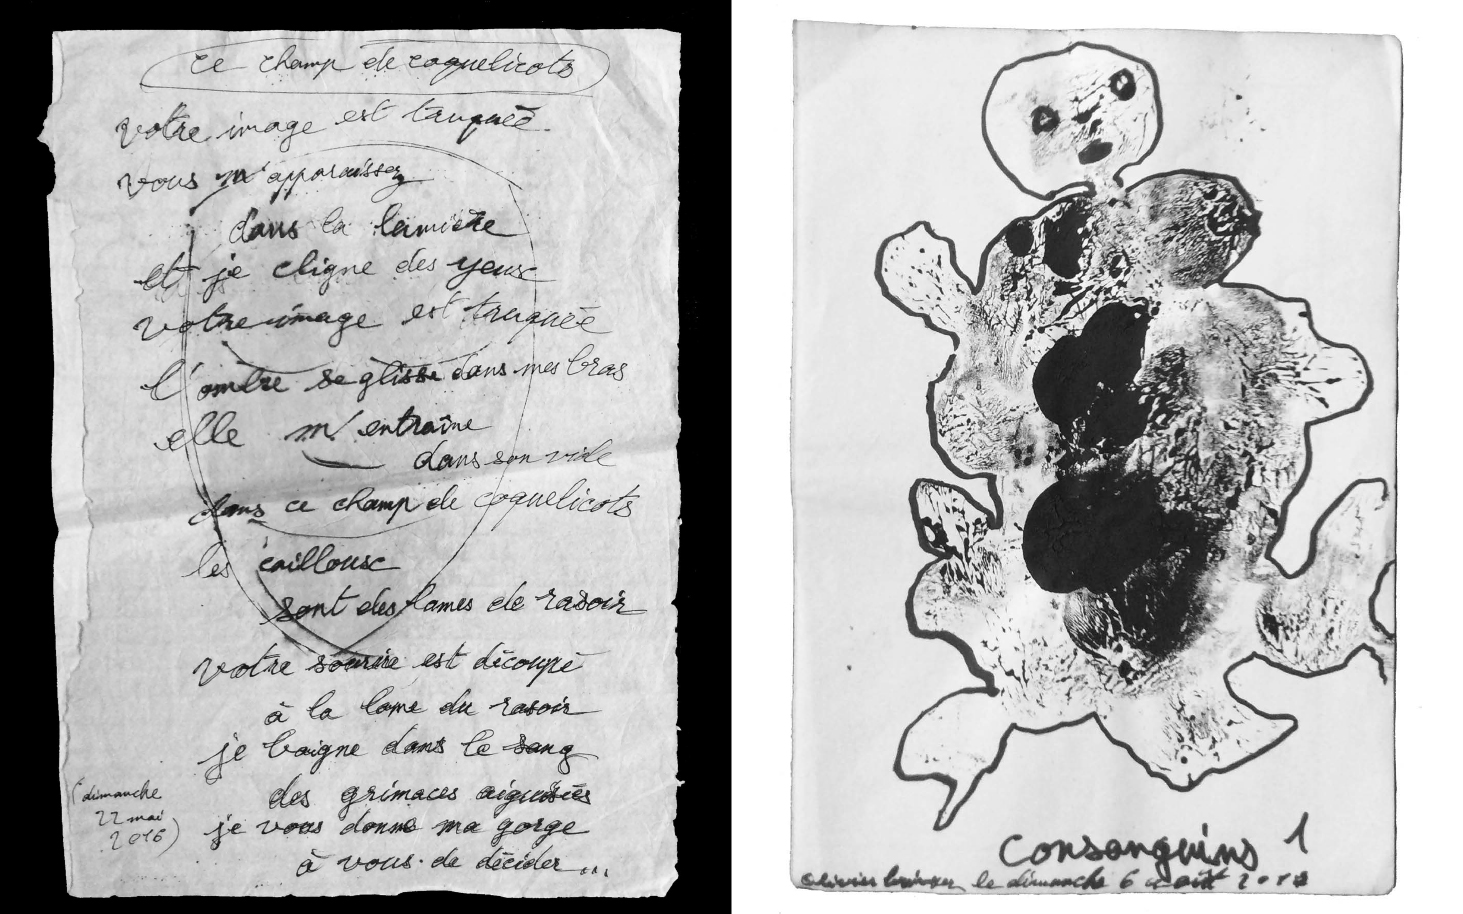 ce champ de coquelicots
votre image est truquée
vous m'apparaissez
dans la lumière
et je cligne des yeux
votre image est truquée
l'ombre se glisse dans mes bras
elle m'entraîne
dans son vide
dans ce champ de coquelicots
les cailloux
sont des lames de rasoir
votre sourire est découpé
à la lame du rasoir
je baigne dans le sang
des grimaces aiguisées
je vous donne ma gorge
à vous de décider...
(dimanche
22 mai
2016)
consanguins 1
Olivier le dimanche 6 août